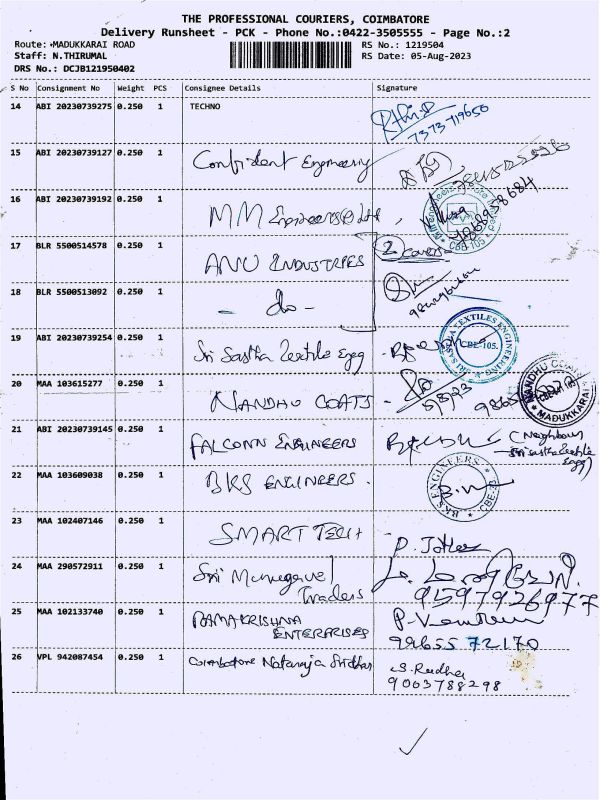 THE PROFESSIONAL COURIERS, COIMBATORE
Delivery Runsheet - PCK - Phone No.:0422-3505555 - Page No.:2
Route: MADUKKARAI ROAD RS No.: 1219504
Staff: N.THIRUMAL RS Date: 05-Aug-2023
DRS No.: DCJB121950402
S No Consignment No Weight PCS Consignee Details Signature
14 ABI 20230739275 0.250 1 TECHNO
7373719650
15 ABI 20230739127 0.250 1 Confident Engineering
16 ABI 20230739192 0.250 1 MM Engineers
CBE-105
17 BLR 5500514578 0.250 1 ANU INDUSTRIES 2 covers
18 BLR 5500513092 0.250 1 - do -
19 ABI 20230739254 0.250 1 Sri Sastha Textile Engg
SRI SASTHA TEXTILES ENGINEERING CBE-105.
20 MAA 103615277 0.250 1 NANDHU COATS 5/8/23
NANDHU COATS MADUKKARAI
21 ABI 20230739145 0.250 1 FALCONN ENGINEERS (Neighbour
Sri sastha textile
Engg)
22 MAA 103609038 0.250 1 BKS ENGINEERS.
BKS ENGINEERS
23 MAA 102407146 0.250 1 SMART TECH
24 MAA 290572911 0.250 1 Sri Murugavel
Traders 9597926977
25 MAA 102133740 0.250 1 RAMAKRISHNA
ENTERPRISES 9965572170
26 VPL 942087454 0.250 1 Coimbatore Nataraja Sridhar S. Radha
9003788298